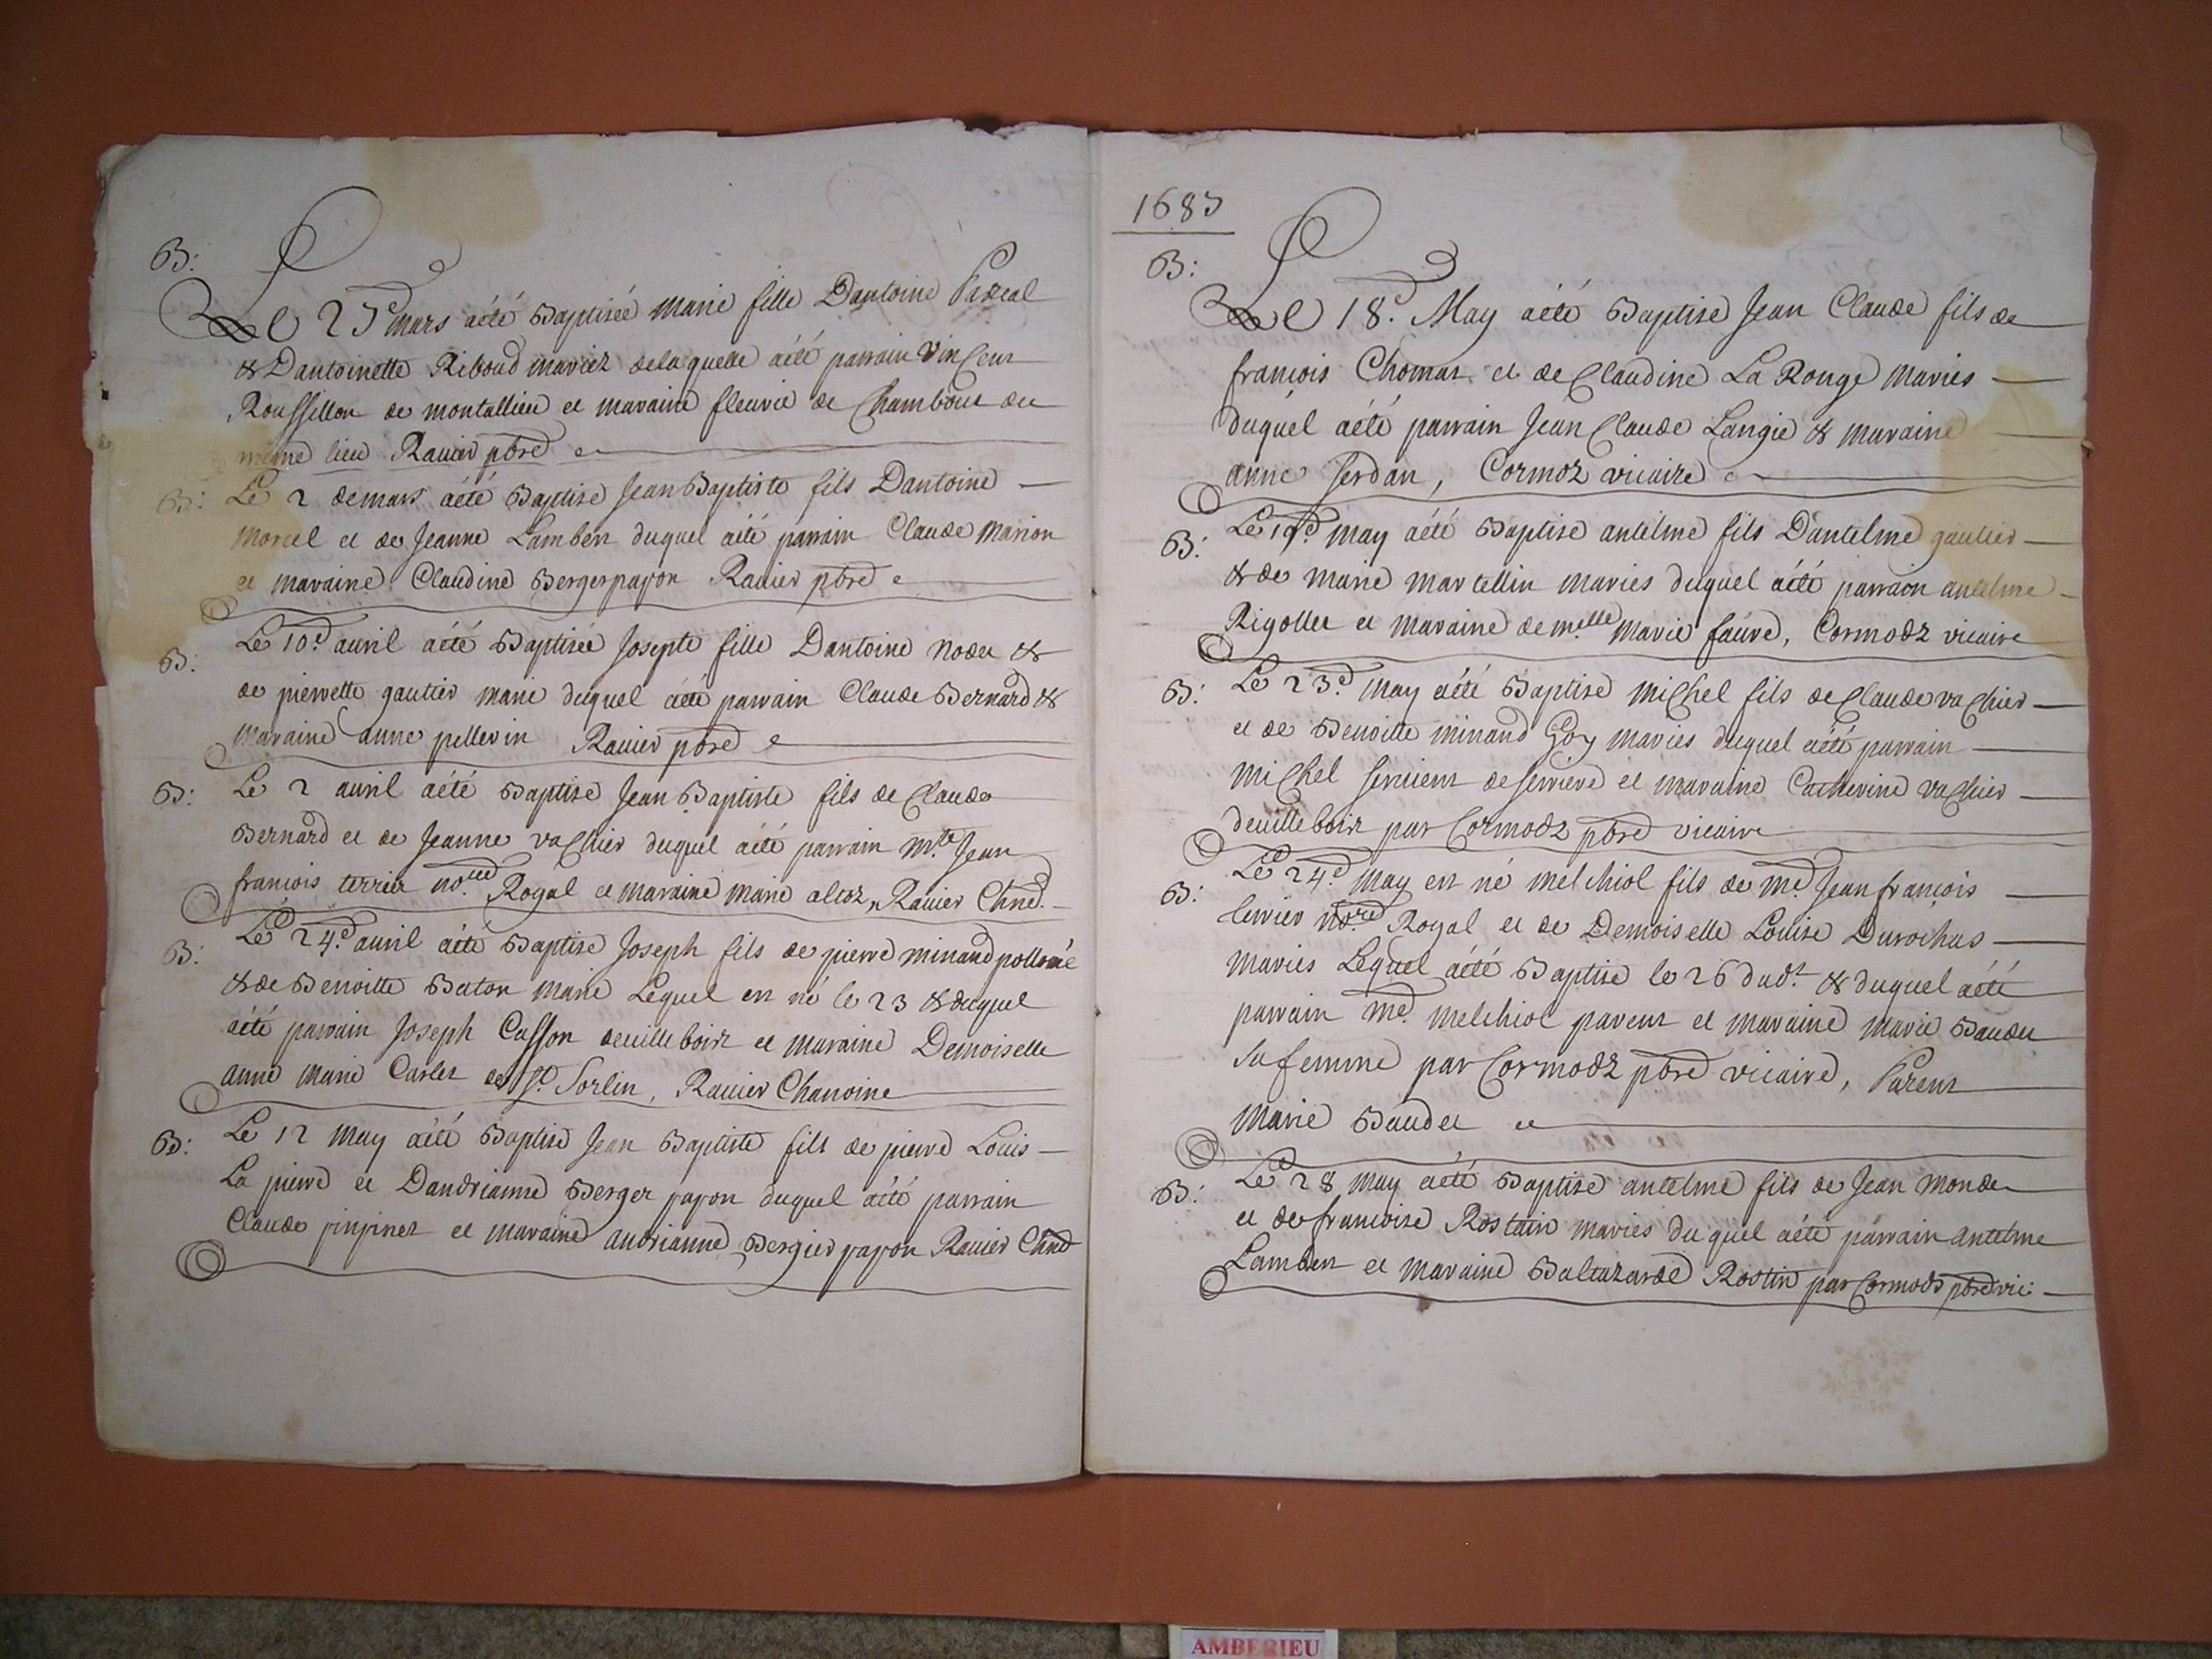 B:
Le 25e mars aété Baptiseé marie fille Dantoine Pascal
& Dantoinette Riboud mariez delaquelle aété parrain Vincent
Roussillon de montallieu et maraine fleurie de Chambout du
meme lieu Ravier pbre
B: Le 2 demars aété Baptise Jean Baptiste fils Dantoine
morcel et de Jeanne Lambert duquel aété parrain Claude Marion
et maraine Claudine Bergerpapon Ravier pbre
B: Le 10e avril aété Baptiseé Josepte fille Dantoine nodet &
de pierrette gautier marié duquel aété parrain Claude Bernard &
maraine anne pellerin Ravier pbre
B: Le 2 avril aété Baptise Jean Baptiste fils de Claude
Bernard et de Jeanne vachier duquel aété parrain Mte Jean
francois terrier Royal et maraine marie altoz, Ravier Chne.
B: Le 24e avril aété Baptise Joseph fils de pierre minand
& de Benoitte Baton marié Lequel est né le 23 & duquel
aété parrain Joseph Casson deuillebois et maraine Demoiselle
anne marie Carlet de St. Sorlin, Ravier Chanoine
B: Le 12 May aété Baptise Jean Baptiste fils de pierre Louis
La pierre et Dandrianne Berger papon duquel aété parrain
Claude pinpinet et maraine andrianne Bergier papon Ravier Chne
1685
B:
Le 18e. May aété Baptise Jean Claude fils de
francois Chomat et de Claudine La Rouge Maries
duquel aété parrain Jean Claude Langie & maraine
anne Serdan, Cormoz vicaire
B: Le 19e. May aété Baptise antelme fils Dantelme gautier
& de marie martellin maries duquel aété parrain antelme
Rigollet et maraine demelle Marie faure, Cormodz vicaire
B: Le 23e. May aété Baptise Michel fils de Claude vachier
et de Benoitte minand Goy maries duquel aété parrain
Michel de Serriere et maraine Catherine vachier
deuillebois par Cormodz pbre vicaire
B: Le 24e. May est né melchiol fils de me Jean francois
terrier nore Royal et de Demoiselle Louise Durochas
maries Lequel aété Baptise le 26 dudt & duquel aété
parrain me. melchiol parent et maraine marie Baudet
Sa femme par Cormodz pbre vicaire, Parent
Marie Baudet
B: Le 28 May aété Baptise antelme fils de Jean Mondet
et de francoise Rostain maries du quel aété parrain antelme
Lambert et maraine Baltazarde Rostin par Cormodz pbre vic.
AMBERIEU